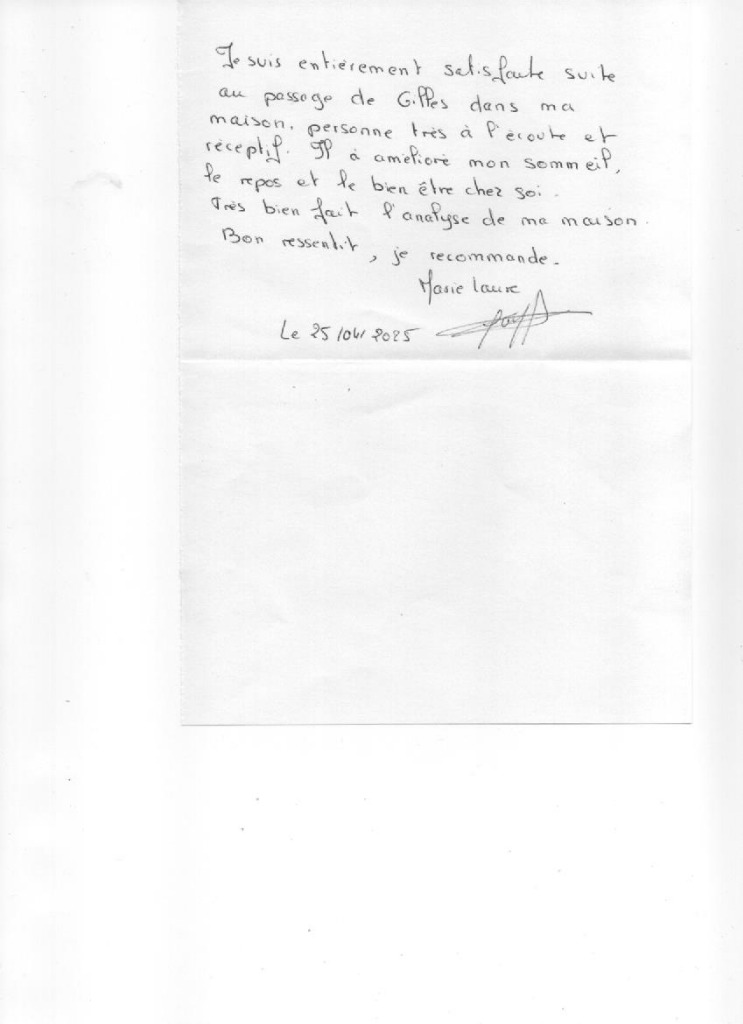 Je suis entièrement satisfaite suite
au passage de Gilles dans ma
maison, personne très à l'écoute et
réceptif. Il à amélioré mon sommeil,
le repos et le bien être chez soi.
Très bien fait l'analyse de ma maison.
Bon ressentit, je recommande.
Marie Laure
Le 25/04/2025